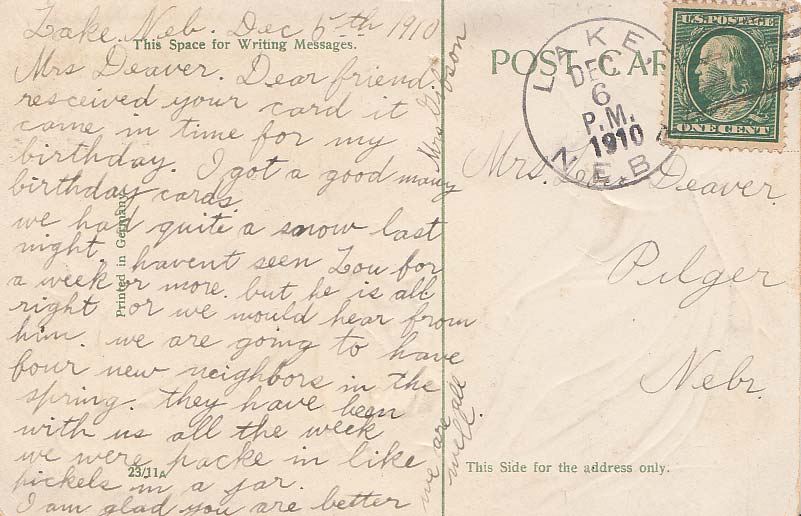 Lake. Neb. Dec 5th 1910
This Space for Writing Messages.
Mrs Deaver. Dear friend.
resceived your card it
came in time for my
birthday. I got a good many
birthday cards
we had quite a snow last
night. havent seen Lou for
a week or more. but he is all
right or we would hear from
him. we are going to have
four new neighbors in the
spring. they have been
with us all the week
we were packe in like
pickels in a jar.
I am glad you are better
we are all
well.
Mrs Gibson
Printed in Germany
23/11A
POST CAR
U.S. POSTAGE
ONE CENT
LAKE,
DEC
6
P.M.
1910
NEB.
Mrs. Deaver.
Pilger
Nebr.
This Side for the address only.